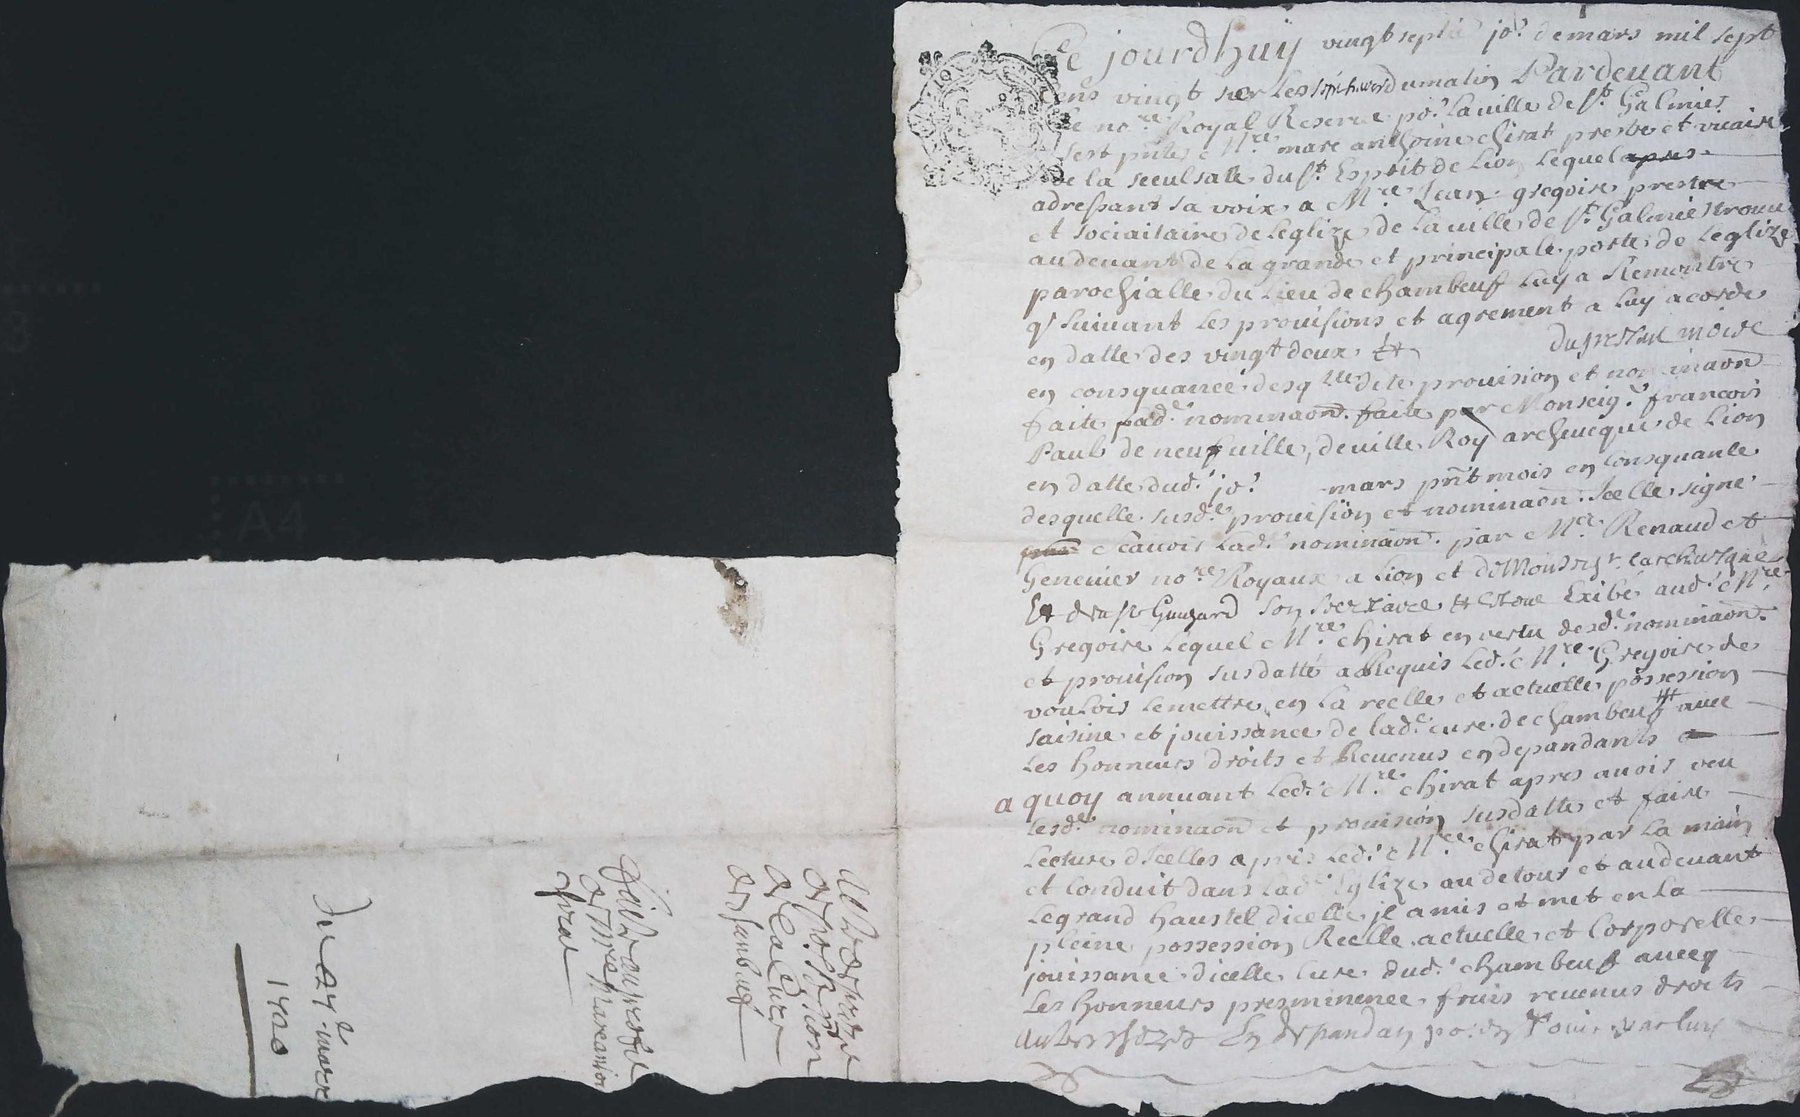 Ce jourdhuÿ vingt septie jo.r de mars mil sept
cens vingt sur les sept heures du matin Pardevant
le no.re Royal Reservé po.r la ville de S.t Galmier
sest pntes M.re marc anthoine chirat prestre et vicaire
de la seculsalle du S.t Esprit de Lion Lequel apres
adressant sa voix a M.re Jean gregoire prestre
et sociaitaire de leglize de La ville de S.t Galmier trouve
au devant de la grande et principale porte de Leglize
parochialle du Lieu de chambeuf Luy a Remontre
q.e suivant les provisions et agrement a luy acorde
en datte des vingt deux du present mois
en consquance desq.lle dite provision et nominaon
faite lad.e nominaon faite par Monseig.r francois
Paul de neufville, deville Roy archeveque de Lion
en datte dud.t jo.r mars pnt mois en consquance
desquelle susd.e provision et nominaon Icelle signe
scavoir lad.e nominaon par M.re Renaud et
Genevier no.re Royaux a Lion et de Monseig.r Larchevesque
Guygard son secretaire Exibé aud.t M.re
Gregoire Lequel M.re chirat en vertu desd.e nominaon
et provision susdatté a Requis Led.t M.re Gregoire de
vouloir le mettre en la reelle et actuelle possession
saisine et jouissance de lad.e cure de chambeuf avec
les honneurs droits et Revenus en depandants
a quoy annuant Led.t M.re chirat apres avoir veu
lesd.e nominaon et provision susdatte et faire
Lecture dIcelles a pris Led.t M.re chirat par La main
et conduit dans Lad.e Eglize au detour et au devant
Le grand haustel dicelle, il a mis et met en La
pleine possession Reelle actuelle et Corporelle
jouissance dicelle Cure dud.t chambeuf avecq
Les honneurs preeminence fruis revenus droits
En depandan po.r en
Acte de prise
de possession
de la Cure
de Chambeuf
fait au profit
de M.re Marc antoine
chirat
Du 27.e mars
1720